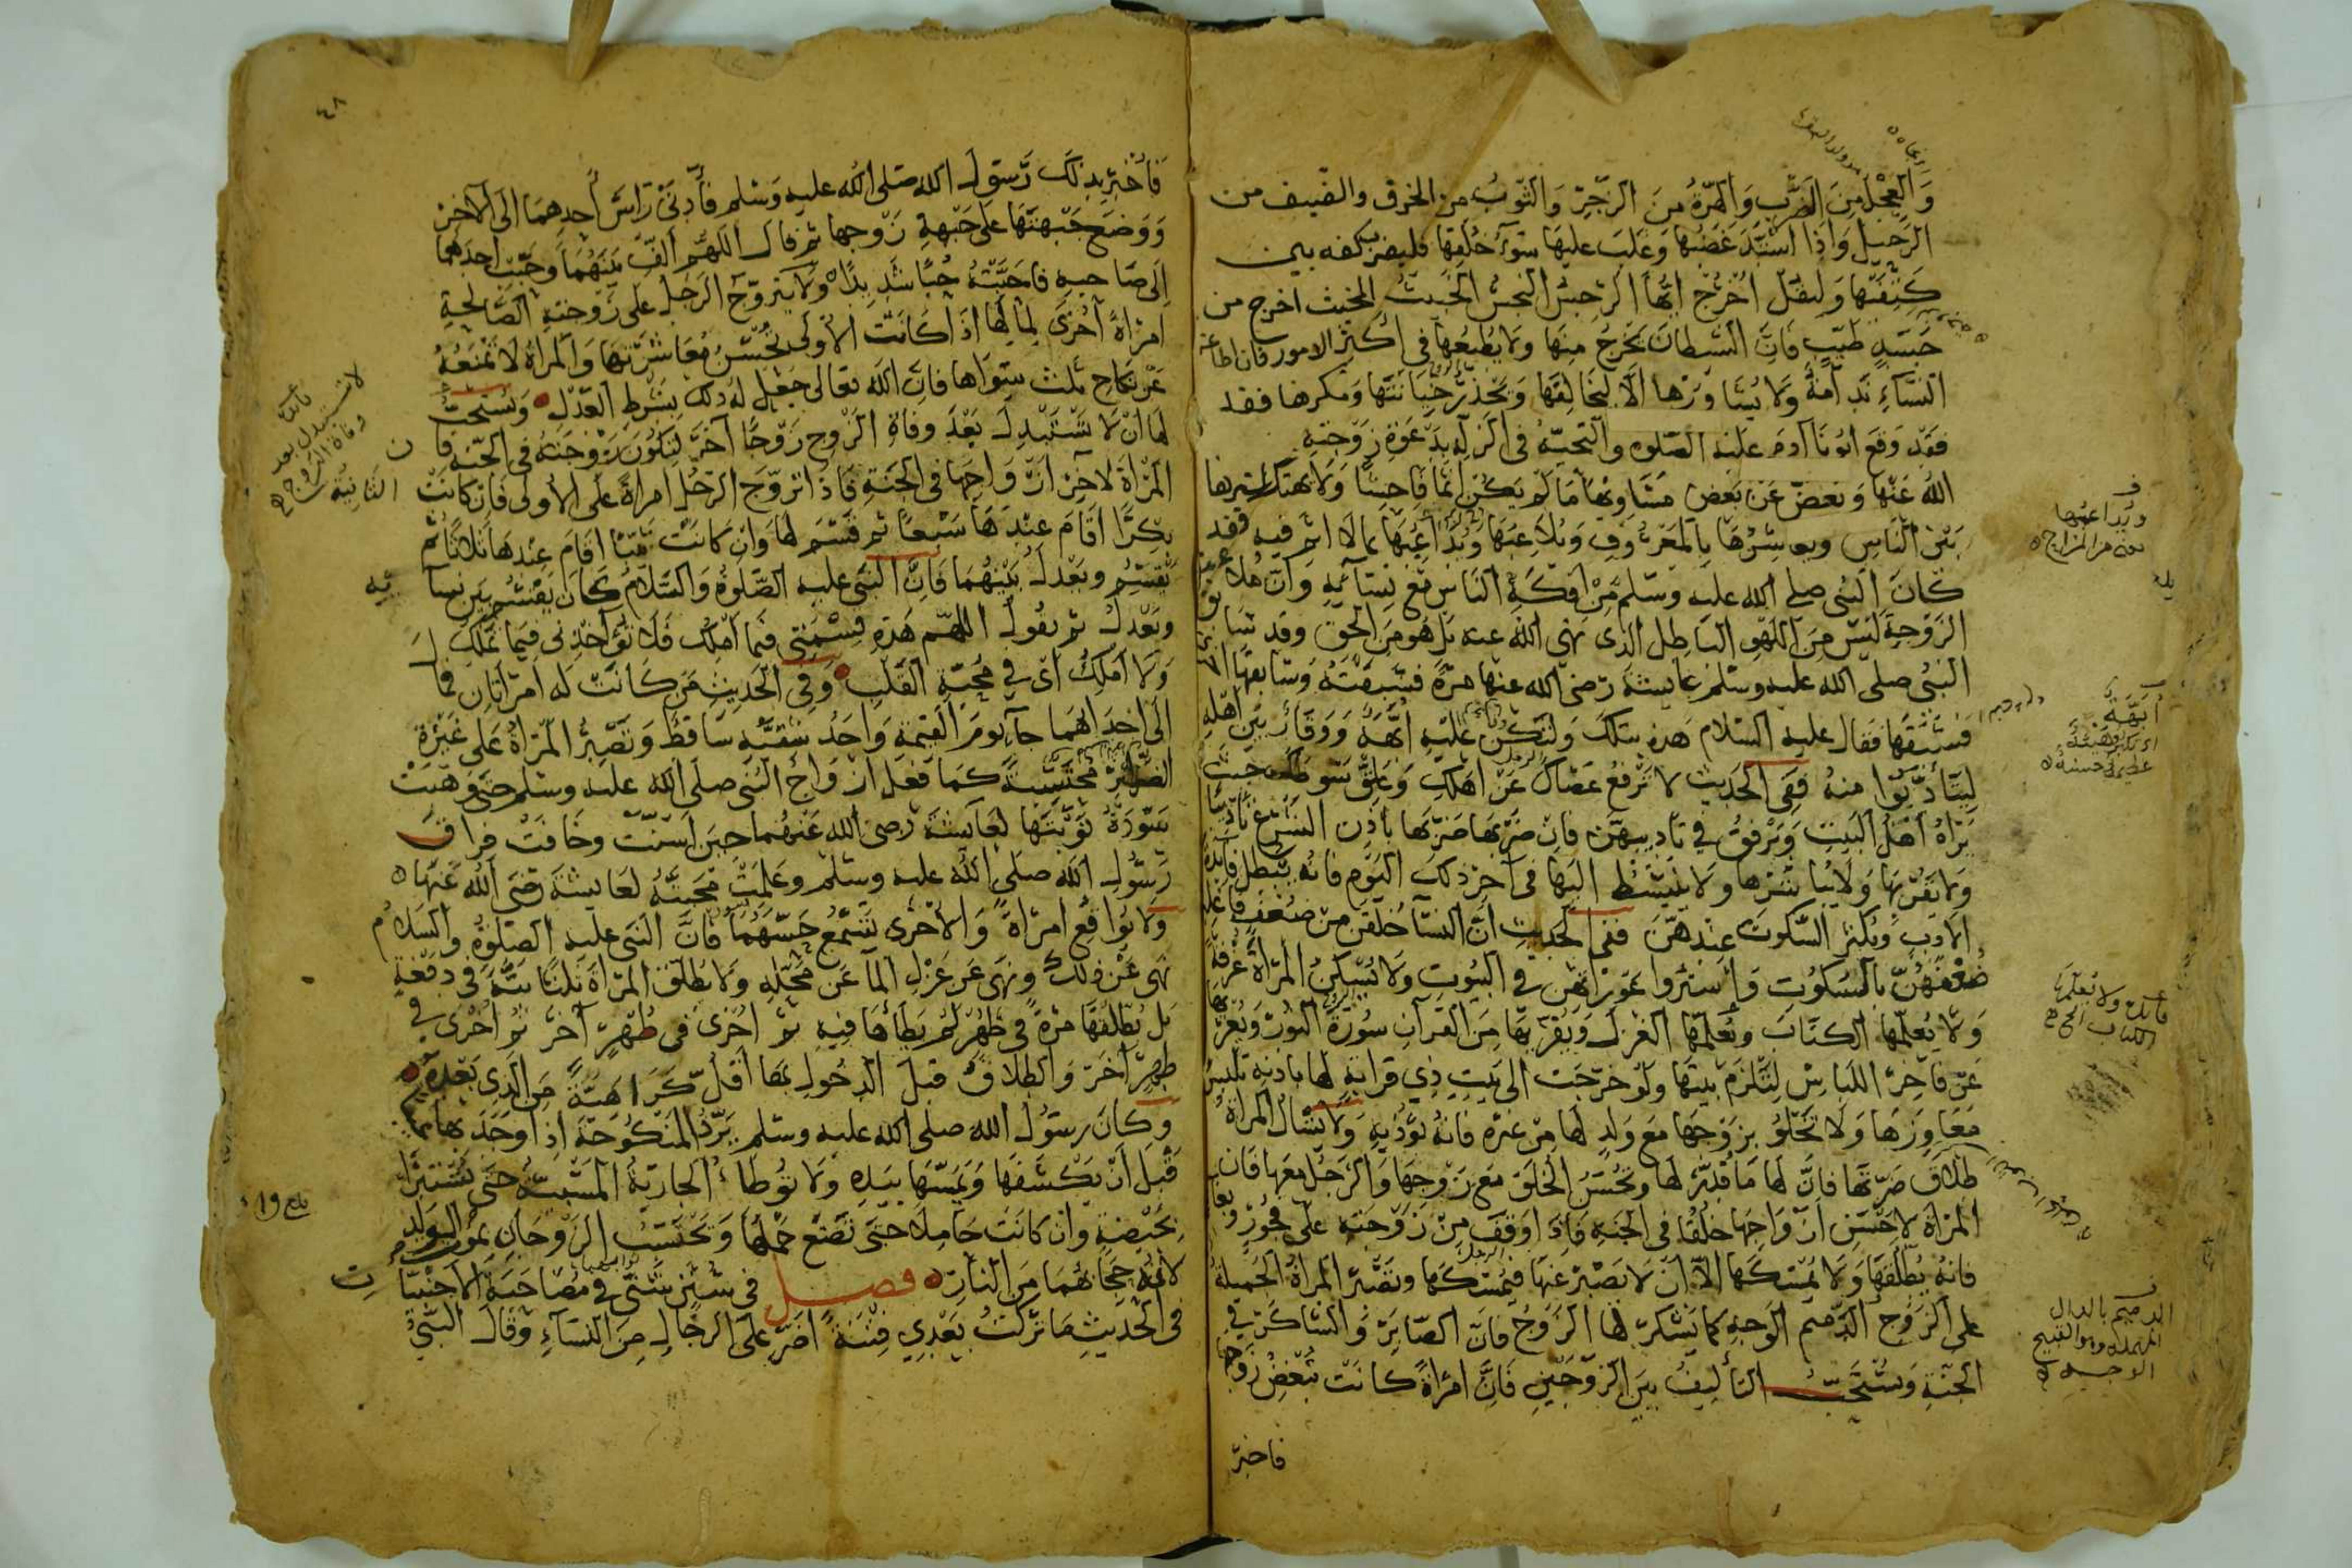 والعجل من الضرب والهرة من الزجر والثوب من الخرق والضيف من
الرحيل واذا اشتد غضبها وغلب عليها سوء خلقها فليضرب بكفه بين
كتفيها وليقل اخرج ايها الرجس النجس الخبيث المخبث اخرج من
جسد طيب فان الشيطان يخرج منها ولا يطيعها فى اكثر الامور فان اطاعة
النساء ندامة ولا يشاورها الا ليخالفها ويحذر خيانتها ومكرها فقد
فقد وقع ابونا آدم عليه الصلوة والتحية فى الزلة بدعوة زوجته
الله عنها ويغض عن بعض مساويها ما لم يكن اثما فاحشا ولا يهتك سترها
بين الناس ويعاشرها بالمعروف ويلاعبها ويداعبها بما لا اثم فيه فقد
كان النبى صلى الله عليه وسلم من افكه الناس مع نسائه وان ملاعبة
الزوجة ليس من اللهو الباطل الذى نهى الله عنه بل هو من الحق وقد سابق
النبى صلى الله عليه وسلم عايشة رضى الله عنها مرة فسبقته وسابقها
فسبقها فقال عليه السلام هذه بتلك ولتكن عليه ابهة ووقار بين اهله
ليتأدبوا منه ففى الحديث لا ترفع عصاك عن اهلك وعلق سوطك حيث
يراه اهل البيت ويرفق في تاديبهن فان ضربها ضربها باذن الشرع تاديبا
ولا يقربها ولا يباشرها ولا ينبسط اليها فى آخر ذلك اليوم فانه يبطل فائدة
الادب ويكثر السكوت عندهن ففى الحديث ان النسا خلقن من ضعف
ضعفهن بالسكوت واستروا عوراتهن في البيوت ولا يسكن المرأة غرفة
ولا يعلمها الكتاب ويعلمها الغزل ويقريها من القرآن سورة النور
عن فاخر اللباس لتلزم بيتها ولو خرجت الى بيت ذي قرابة لها باذنه تلبس
معاوزها ولا تخلو بزوجها مع ولد لها من غيره فانه يؤذيه ولا تسأل المراة
طلاق ضرتها فان لها ما قدر لها وتحسن الخلق مع زوجها والرجل معها فان
المراة لاحسن ازواجها خلقا فى الجنة فاذا وقف من زوجته على فجور
فانه يطلقها ولا يمسكها الا ان لا يصبر عنها فيمسكها وتصبر المراة الجميلة
على الزوج الدميم الوجه كما يشكر لها الزوج فان الصابر والشاكر في
الجنة ويستحب التأليف بين الزوجين فان امراة كانت تبغض زوجها
فاخبر
ويداعبها
من المزاح
ابهة
فائدة ولا يعلمها
الكتاب الخ
الدميم بالدال
المهملة وهو القبيح
الوجه
٤٨
فاخبر بذلك رسول الله صلى الله عليه وسلم فأدنى رأس أحدهما الى الآخر
ووضع جبهتها على جبهة زوجها ثم قال اللهم الف بينهما وحبب احدهما
الى صاحبه فاحبته حبا شديدا ولا يتزوج الرجل على زوجته الصالحة
امراة اخرى لمالها اذا كانت الاولى تحسن معاشرتها والمراة لا تمنعه
عن نكاح ثلث سواها فان الله تعالى جعل له ذلك بشرط العدل ويستحب
لها ان لا تستبدل بعد وفاة الزوج زوجا آخر لتكون زوجته فى الجنة فان
المراة لاخر ازواجها فى الجنة فاذا تزوج الرجل امراة على الاولى فان كانت الثانية
بكرا اقام عندها سبعا ثم قسم لها وان كانت ثيبا اقام عندها ثلاثا ثم
يقسم ويعدل بينهما فان النبى عليه الصلوة والسلام كان يقسم بين نسآئه
ويعدل ثم يقول اللهم هذه قسمتى فيما املك فلا تؤاخذنى فيما تملك
ولا املك اى في محبة القلب وفى الحديث من كانت له امرأتان فمال
الى احديهما جآء يوم القيمة واحد شقيه ساقط وتصبر المراة على غيرة
الضرائر محتسبة كما فعل ازواج النبى صلى الله عليه وسلم حتى وهبت
سودة نوبتها لعايشة رضى الله عنهما حين اسنت وخافت فراق
رسول الله صلى الله عليه وسلم وعلمت محبته لعايشة رضى الله عنها
ولا يواقع امراة والاخرى تسمع حسهما فان النبى عليه الصلوة والسلام
نهى عن ذلك ونهى عن عزل المآء عن محله ولا يطلق المرأة ثلثا بتة فى دفعة
بل يطلقها مرة في طهر لم يطأها فيه ثم اخرى فى طهر آخر ثم اخرى في
طهر آخر والطلاق قبل الدخول بها اقل كراهة من الذى بعده
وكان رسول الله صلى الله عليه وسلم يرد المنكوحة اذا وجد بها
قبل أن يكشفها ويمسها بيده ولا توطأ الجارية المسبية حتى تستبرأ
بحيضة وان كانت حاملا حتى تضع حملها ويحتسب الزوجان بموت الولد
لانه حجابهما من النار فصل فى سنن شتى في مصاحبة الاجنبيات
فى الحديث ما تركت بعدي فتنة اضر على الرجال من النساء وقال النبي
فائدة
لا تستبدل بعد
وفاة الزوج